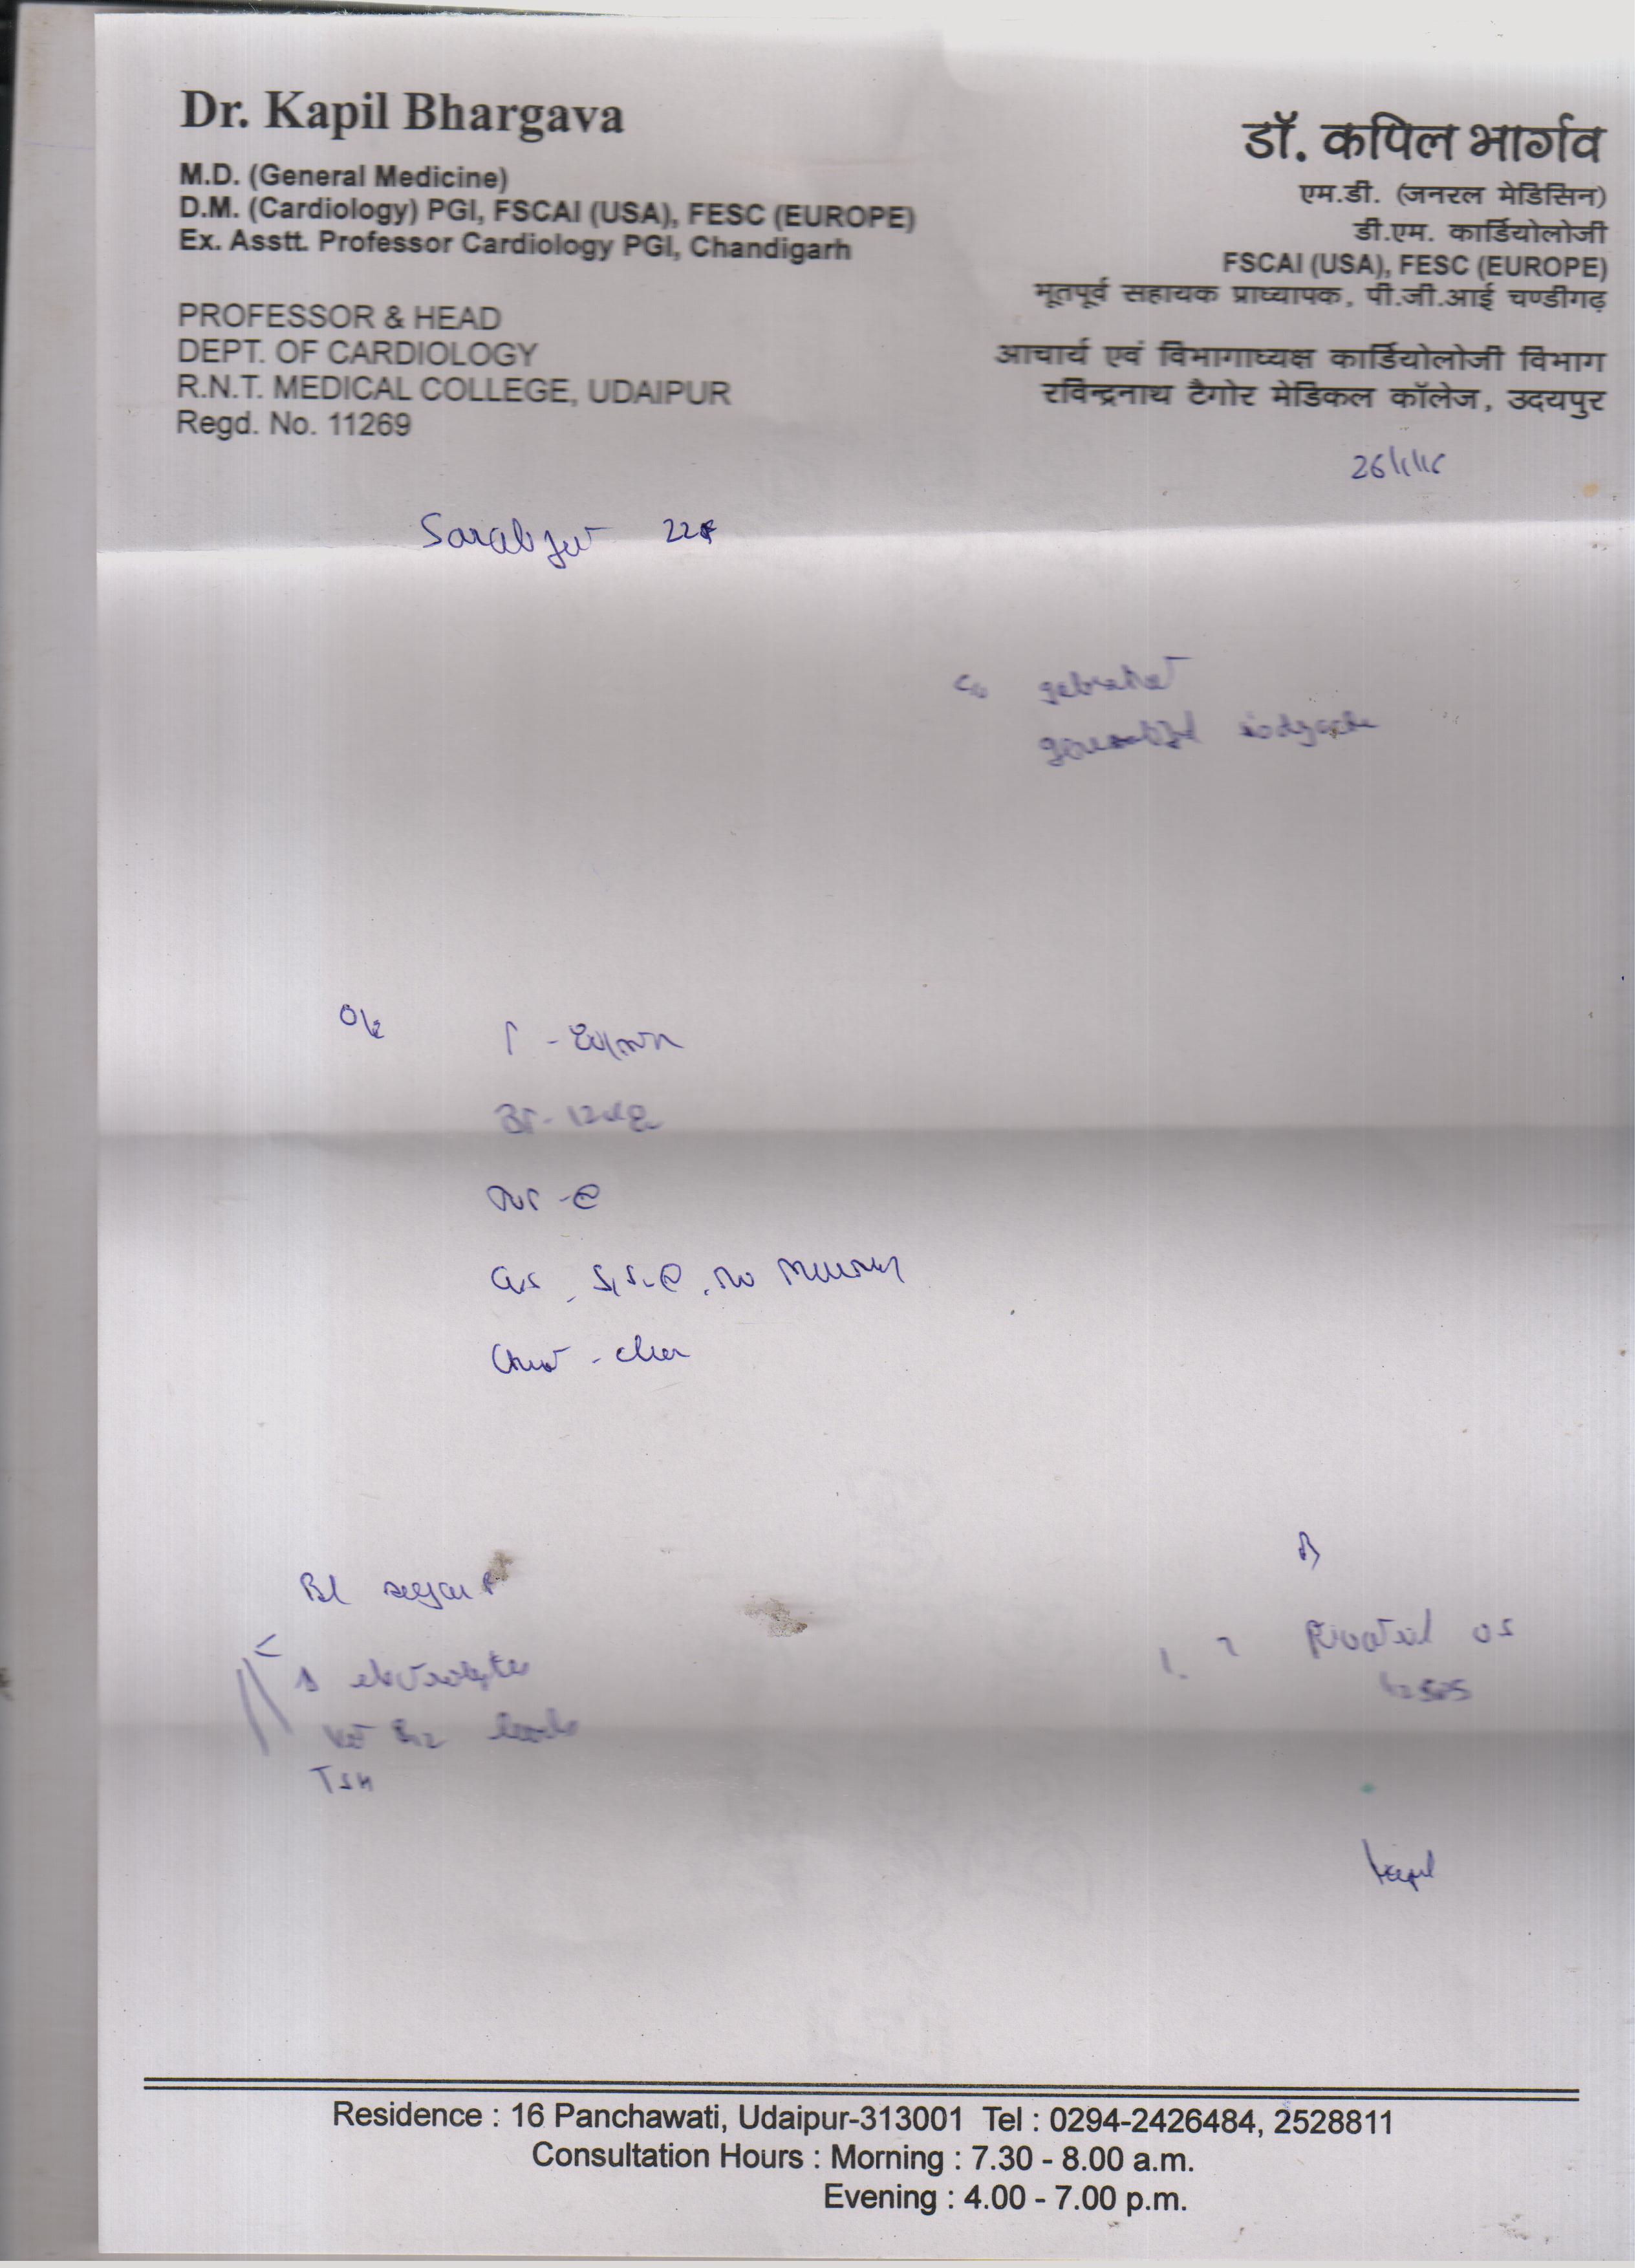 Dr. Kapil Bhargava
M.D. (General Medicine)
D.M. (Cardiology) PGI, FSCAI (USA), FESC (EUROPE)
Ex. Asstt. Professor Cardiology PGI, Chandigarh
PROFESSOR & HEAD
DEPT. OF CARDIOLOGY
R.N.T. MEDICAL COLLEGE, UDAIPUR
Regd. No. 11269
डॉ. कपिल भार्गव
एम.डी. (जनरल मेडिसिन)
डी.एम. कार्डियोलोजी
FSCAI (USA), FESC (EUROPE)
भूतपूर्व सहायक प्राध्यापक, पी.जी.आई चण्डीगढ़
आचार्य एवं विभागाध्यक्ष कार्डियोलोजी विभाग
रविन्द्रनाथ टैगोर मेडिकल कॉलेज, उदयपुर
Sarabjeet
O/E
no murmur
Chest - clear
Bl sugar
S electrolytes
Vit B12 levels
TSH
1.
Kapil
Residence : 16 Panchawati, Udaipur-313001 Tel : 0294-2426484, 2528811
Consultation Hours : Morning : 7.30 - 8.00 a.m.
Evening : 4.00 - 7.00 p.m.